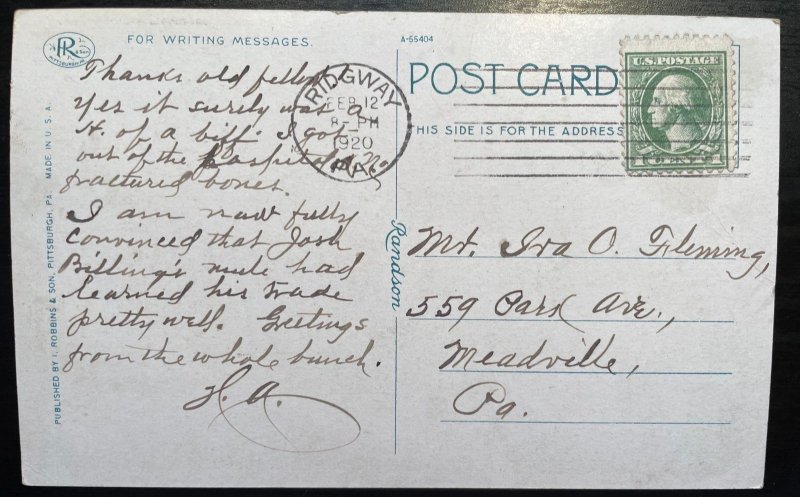 FOR WRITING MESSAGES.
A-55404
POST CARD
THIS SIDE IS FOR THE ADDRESS
U.S. POSTAGE
CENTS
RIDGWAY
FEB 12
8- PM
1920
PA.
PR
& SON
PITTSBURGH, PA.
Thanks old fellow
Yes it surely was a
H. of a biff. I got
out of the hospital. No
fractured bones.
I am now fully
convinced that Josh
Billing's mule had
learned his trade
pretty well. Greetings
from the whole bunch.
H. A.
Mr. Ira O. Fleming,
559 Park Ave.,
Meadville,
Pa.
Randson
PUBLISHED BY I. ROBBINS & SON, PITTSBURGH, PA. MADE IN U.S.A.